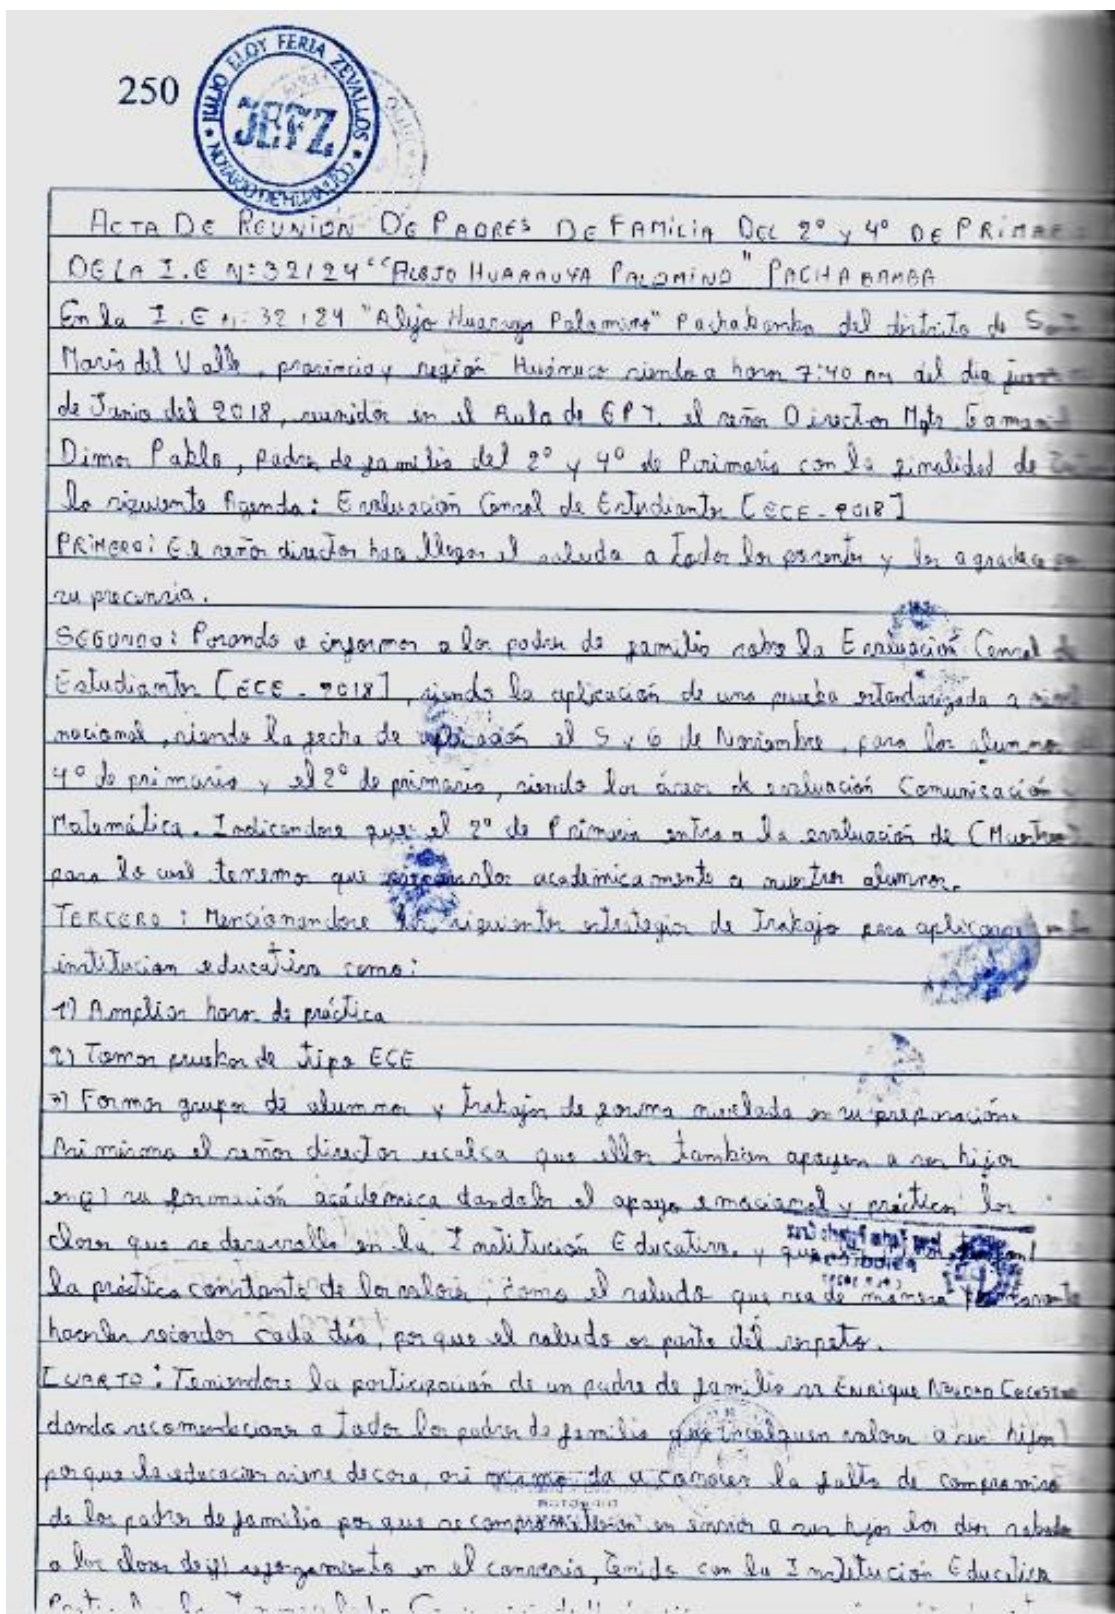 250
JULIO ELOY FERIA ZEVALLOS
JEFZ
NOTARIO DE HUANUCO
ACTA DE REUNIÓN DE PADRES DE FAMILIA DEL 2° y 4° DE PRIMAR
DE LA I.E N:32124 "ALEJO HUARAUYA PALOMINO" PACHABAMBA
En la I.E N: 32124 "Alejo Palomino" Pachabamba del distrito de
María del Valle, provincia y región Huánuco siendo a horas 7:40 am del día
de Junio del 2018, reunidos en el Aula de EPT, el señor Director Mgtr.
Pablo, padres de familia del 2° y 4° de Primaria con la finalidad de
la siguiente Agenda: Evaluación Censal de Estudiantes [ECE-2018]
PRIMERO: El señor director hace llegar el saludo a todos los presentes y les agradece
su precensia.
SEGUNDO: Pasando a informar a los padres de familia sobre la Evaluación Censal de
Estudiantes [ECE-2018], siendo la aplicación de una prueba estandarizada a nivel
nacional, siendo la fecha de aplicación el 5 y 6 de Noviembre, para los alumnos
4° de primaria y el 2° de primaria, siendo las áreas de evaluación Comunicación
Matemática. Indicandose que el 2° de Primaria entra a la evaluación de
para lo cual tenemos que académicamente a nuestros alumnos.
TERCERO: Mencionandose las siguientes estrategias de trabajo para
institucion educativa como:
1) Ampliar horas de práctica
2) Tomar pruebas de tipo ECE
3) Formar grupos de alumnos y trabajar de forma nivelada en su preparación.
Asi mismo el señor director recalca que ellos tambien apoyen a sus hijos
su formación académica dandoles el apoyo emocional y las
clases que se desarrolla en la Institución Educativa, y que
la práctica constante de los valores, como el saludo que sea de manera
hacerles recordar cada día, por que el saludo es parte del respeto.
CUARTO: Teniendose la participación de un padre de familia sr ENRIQUE
dando recomendaciones a todos los padres de familia que inculquen valores a sus hijos
porque la educacion viene de casa, asi mismo da a conocer la falta de compromiso
de los padres de familia por que se comprometieron en enviar a sus hijos los dias sabados
a las clases de reforzamiento en el convenio, tenido con la Institución Educativa